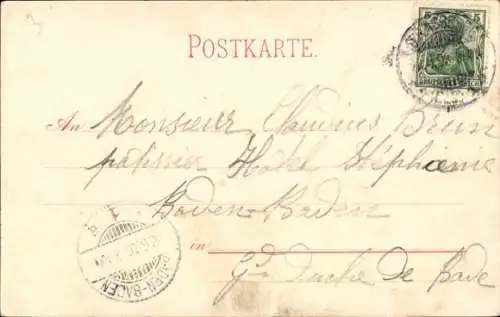 3
5 5
POSTKARTE.
An Monsieur Claudius Brun
patissier Hotel Stéphanie
Baden-Baden
in
Gd Duché de Bade
BADEN-BADEN